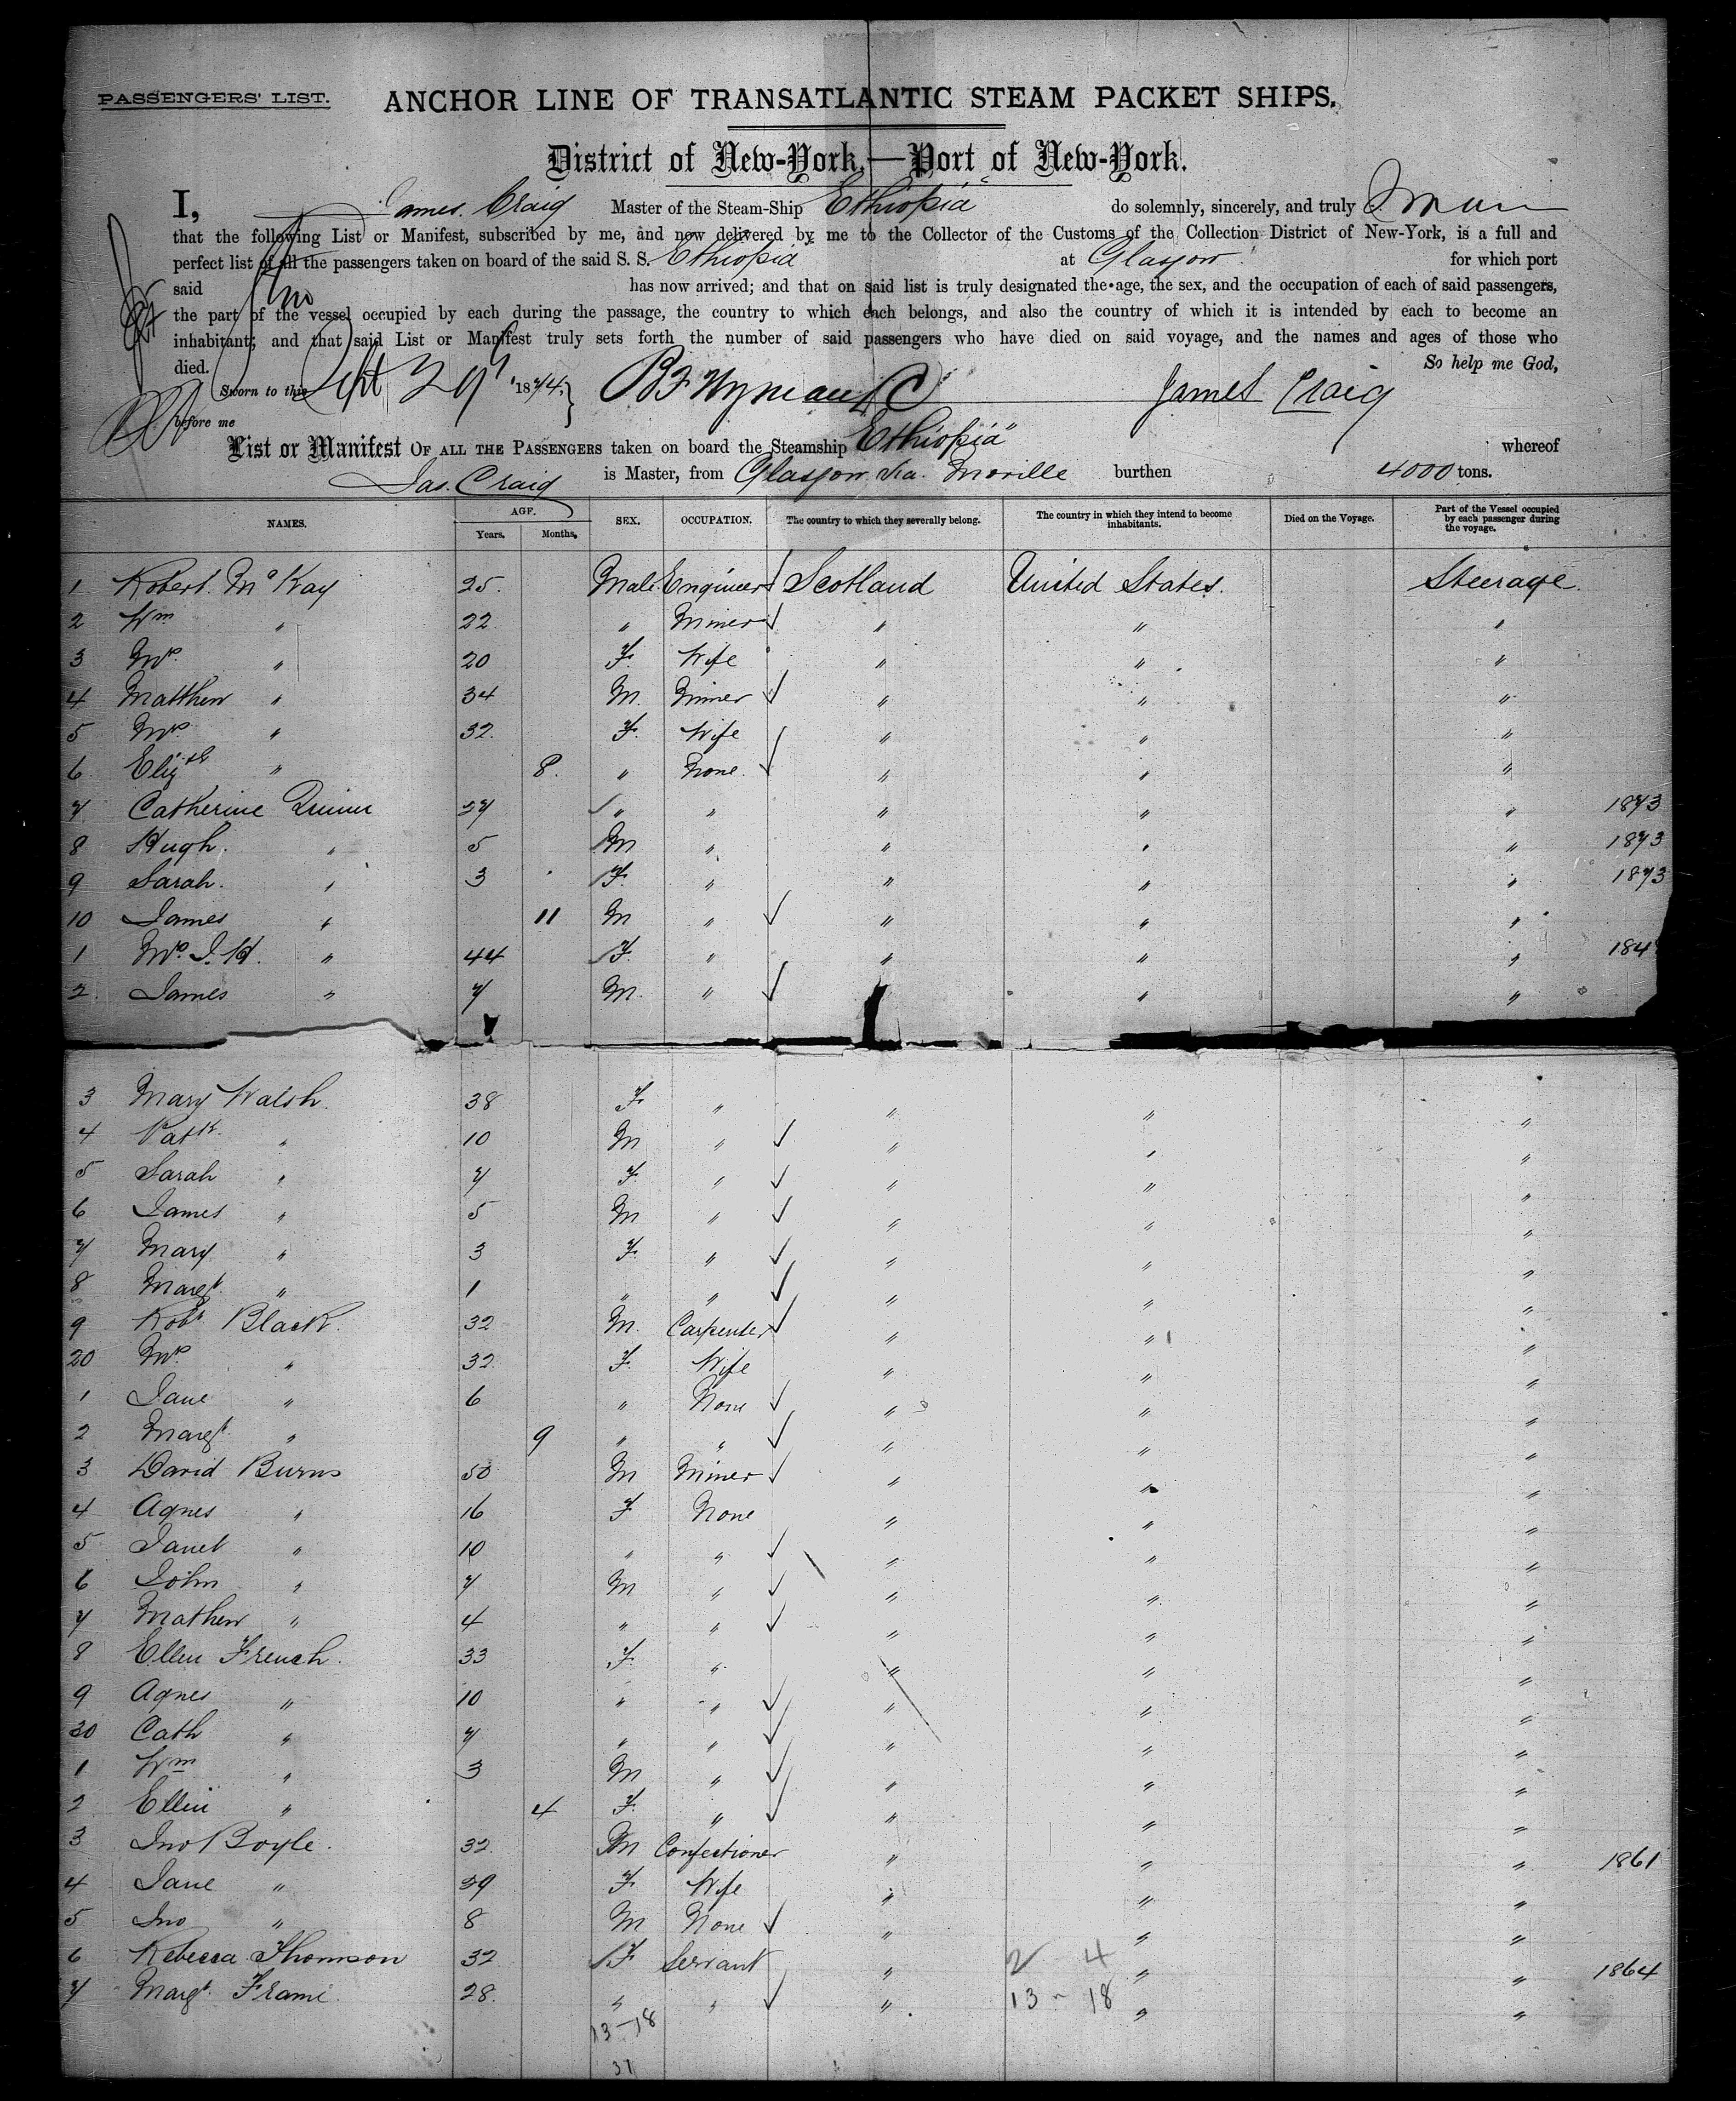 PASSENGERS' LIST.
ANCHOR LINE OF TRANSATLANTIC STEAM PACKET SHIPS.
District of New-York,—Port of New-York.
I, James Craig Master of the Steam-Ship Ethiopia do solemnly, sincerely, and truly
that the following List or Manifest, subscribed by me, and now delivered by me to the Collector of the Customs of the Collection District of New-York, is a full and
perfect list of all the passengers taken on board of the said S. S. Ethiopia at Glasgow for which port
said has now arrived; and that on said list is truly designated the age, the sex, and the occupation of each of said passengers,
the part of the vessel occupied by each during the passage, the country to which each belongs, and also the country of which it is intended by each to become an
inhabitant; and that said List or Manifest truly sets forth the number of said passengers who have died on said voyage, and the names and ages of those who
died. So help me God,
Sworn to this Sept 29 1874, James Craig
before me
List or Manifest OF ALL THE PASSENGERS taken on board the Steamship "Ethiopia" whereof
Jas. Craig is Master, from Glasgow via Moville burthen 4000 tons.
NAMES. AGE. Years. Months. SEX. OCCUPATION. The country to which they severally belong. The country in which they intend to become inhabitants. Died on the Voyage. Part of the Vessel occupied by each passenger during the voyage.
1 Robert McKay 25 Male Engineer Scotland United States. Steerage.
2 Wm " 22 " Miner " " "
3 Mrs " 20 F. Wife " " "
4 Matthew " 34 M. Miner " " "
5 Mrs " 32 F. Wife " " "
6 Elizth " 8 " None " " "
7 Catherine Quinn 27 " " " " " 1873
8 Hugh " 5 M " " " " 1873
9 Sarah " 3 F " " " " 1873
10 James " 11 M " " " "
1 Mrs J. H. " 44 F. " " " " 184
2 James " 7 M. " " " "
3 Mary Walsh 38 F. " " " "
4 Patk " 10 M " " " "
5 Sarah " 7 F. " " " "
6 James " 5 M " " " "
7 Mary " 3 F. " " " "
8 Margt " 1 " " " " "
9 Robt Black 32 M. Carpenter " " "
20 Mrs " 32 F. Wife " " "
1 Jane " 6 " None " " "
2 Margt " 9 " " " " "
3 David Burns 50 M Miner " " "
4 Agnes " 16 F None " " "
5 Janet " 10 " " " " "
6 John " 7 M " " " "
7 Mathew " 4 " " " " "
8 Ellen French 33 F. " " " "
9 Agnes " 10 " " " " "
30 Cath " 7 " " " " "
1 Wm " 3 M " " " "
2 Ellen " 4 F. " " " "
3 Jno Boyle 32 M Confectioner " " " 1861
4 Jane " 39 F Wife " " "
5 Jno " 8 M None " " "
6 Rebecca Thomson 32 F Servant " " " 1864
7 Margt Frame 28 " " " " "
2 4
13 - 18
13-18
31